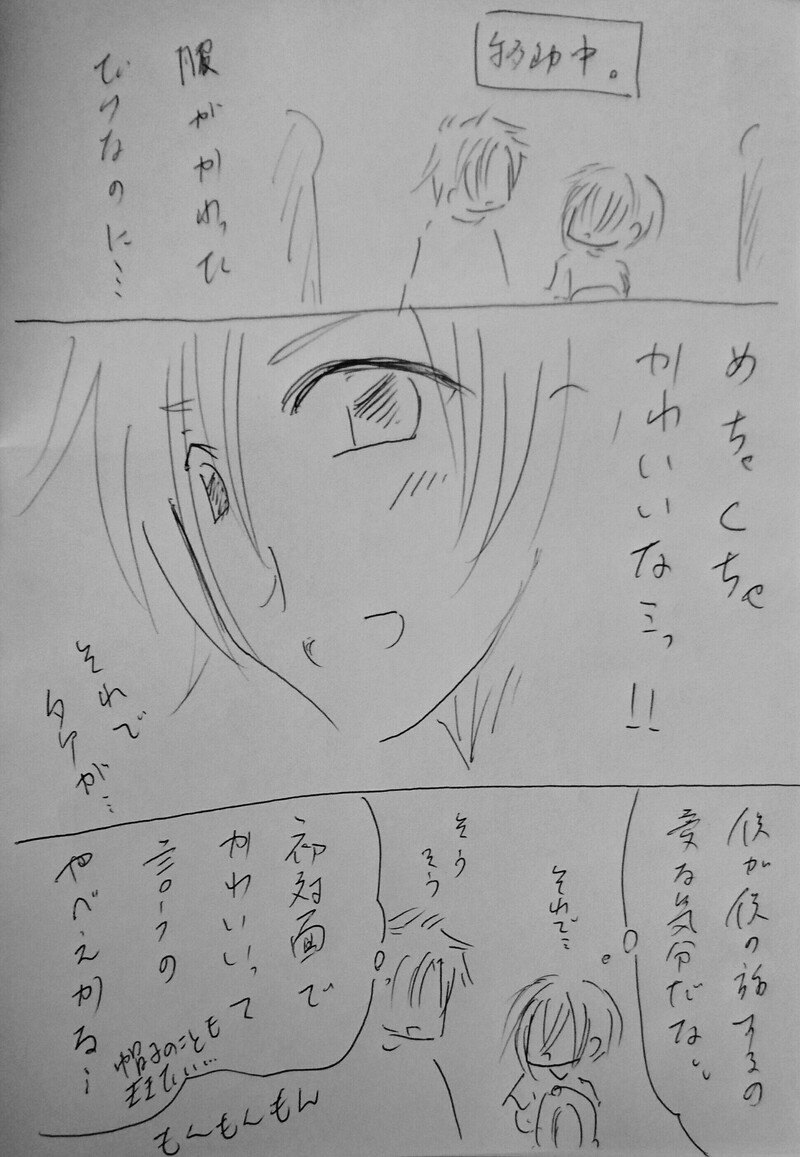 移動中。
服がかわった
だけなのに…
めちゃくちゃ
かわいいな…っ!!
それで
タケが…
俺が俺の話するの
変な気分だな…
それで…
そう
そう
初対面で
かわいいって
言うの
やべえかな…
帽子のことも
もんもんもん